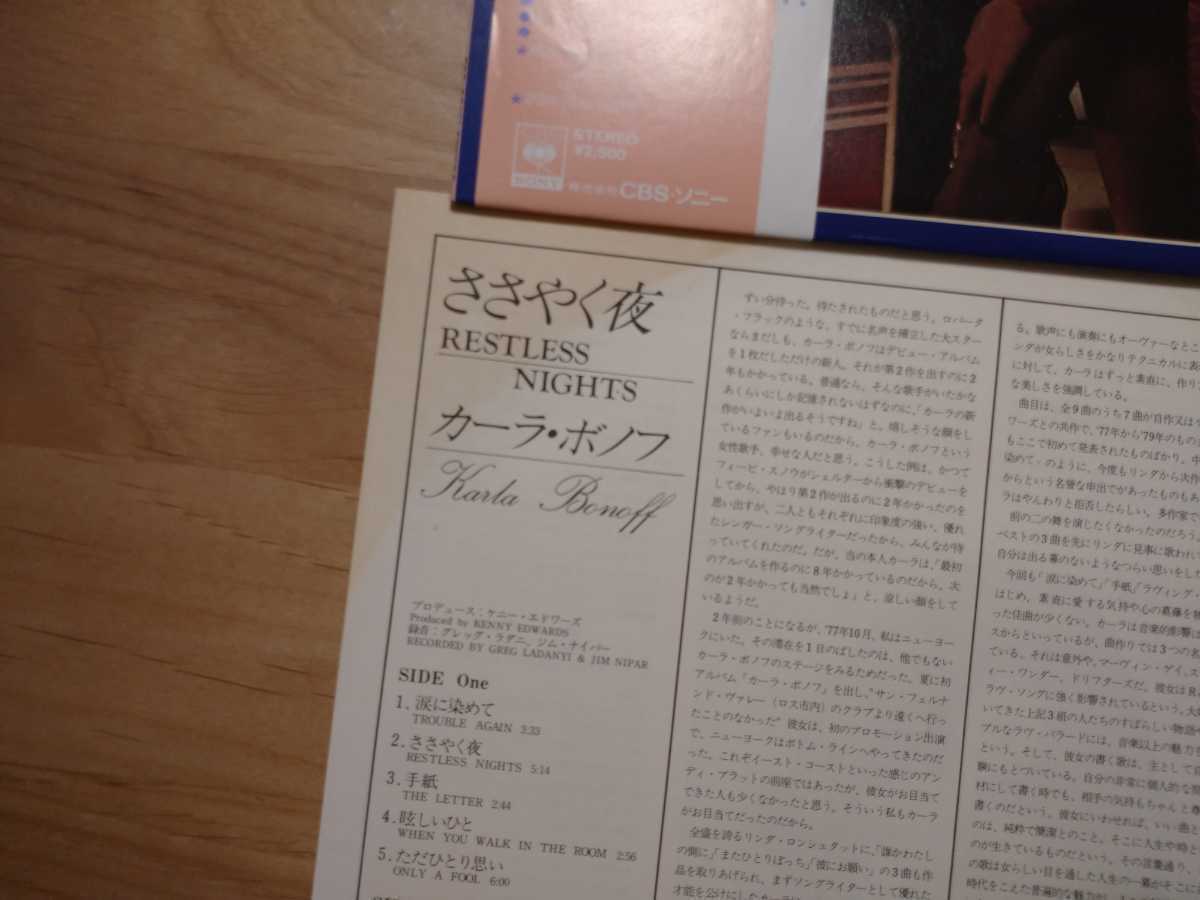 STEREO
¥2,500
SONY
株式会社CBS・ソニー
ささやく夜
RESTLESS
NIGHTS
カーラ・ボノフ
Karla Bonoff
プロデュース：ケニー・エドワーズ
Produced by KENNY EDWARDS
録音：グレッグ・ラダニィ、ジム・ナイパー
RECORDED BY GREG LADANYI & JIM NIPAR
SIDE One
1. 涙に染めて
TROUBLE AGAIN 3:33
2. ささやく夜
RESTLESS NIGHTS 5:14
3. 手紙
THE LETTER 2:44
4. 眩しいひと
WHEN YOU WALK IN THE ROOM 2:56
5. ただひとり思い
ONLY A FOOL 6:00
ずい分待った。待たされたものだと思う。ロバータ
・フラックのような、すでに名声を確立した大スター
ならまだしも、カーラ・ボノフはデビュー・アルバム
を1枚だしただけの新人。それが第2作を出すのに2
年もかかっている。普通なら、そんな歌手がいたかな
あくらいにしか記憶されないはずなのに、「カーラの新
作がいよいよ出るそうですね」と、嬉しそうな顔をし
ているファンもいるのだから、カーラ・ボノフという
女性歌手、幸せな人だと思う。こうした例は、かつて
フィービ・スノウがシェルターから衝撃のデビューを
してから、やはり第2作が出るのに2年かかったのを
思い出すが、二人ともそれぞれに印象度の強い、優れ
たシンガー・ソングライターだったから、みんなが待
っていてくれたのだ。だが、当の本人カーラは、「最初
のアルバムを作るのに8年かかっているのだから、次
のが2年かかっても当然でしょ」と、涼しい顔をして
いるようだ。
2年前のことになるが、'77年10月、私はニューヨー
クにいた。その滞在を1日のばしたのは、他でもない
カーラ・ボノフのステージをみるためだった。夏に初
アルバム「カーラ・ボノフ」を出し、"サン・フェルナ
ンド・ヴァレー（ロス市内）のクラブより遠くへ行っ
たことのなかった"彼女は、初のプロモーション出演
で、ニューヨークはボトム・ラインへやってきたのだ
った。これぞイースト・コーストといった感じのアン
ディ・プラットの前座ではあったが、彼女がお目当て
できた人も少なくなかったと思う。そういう私もカーラ
がお目当てだったのだから。
全盛を誇るリンダ・ロンシュタットに、「誰かわたし
の側に」「またひとりぼっち」「彼にお願い」の3曲も作
品を取りあげられ、まずソングライターとして優れた
才能を公けにした
る。歌声にも演奏にもオーヴァーなとこ
ンダが女らしさをかなりテクニカルに表
に対して、カーラはずっと素直に、作り
な美しさを強調している。
曲目は、全9曲のうち7曲が自作又は
ワーズとの共作で、'77年から'79年のもの
もここで初めて発表されたものばかり。
染めて」のように、今度もリンダから次作
からという名誉な申出でがあったものもあ
ラはやんわりと拒否したらしい。多作家で
前の二の舞を演じたくなかったのだろう。
ベストの3曲を先にリンダに見事に歌われ
自分は出る幕のないようなつらい思いをした
今回も「涙に染めて」「手紙」「ラヴィング・
はじめ、素直に愛する気持や心の葛藤を
った佳曲が少くない。カーラは音楽的影響
スからといっているが、曲作りでは3つの名
ている。それは意外や、マーヴィン・ゲイ、ス
ィー・ワンダー、ドリフターズだ。彼女はR
ラヴ・ソングに強く影響されているという。
いてきた上記3組の人たちのすばらしい物語や
プルなラヴ・バラードには、音楽以上の魅力
という。そして、彼女の書く歌は、主として
験にもとづいている。自分の非常に個人的な
材にして書く時でも、相手の気持もちゃんと
書くのだという。彼女にいわせれば、いい曲と
のは、純粋で簡潔とのこと。そこに人生や時と
のが生きているものだという。その言葉通り、
の歌は女らしい目を通した人生の一幕がそこに
時代をこえた普遍的な魅力が